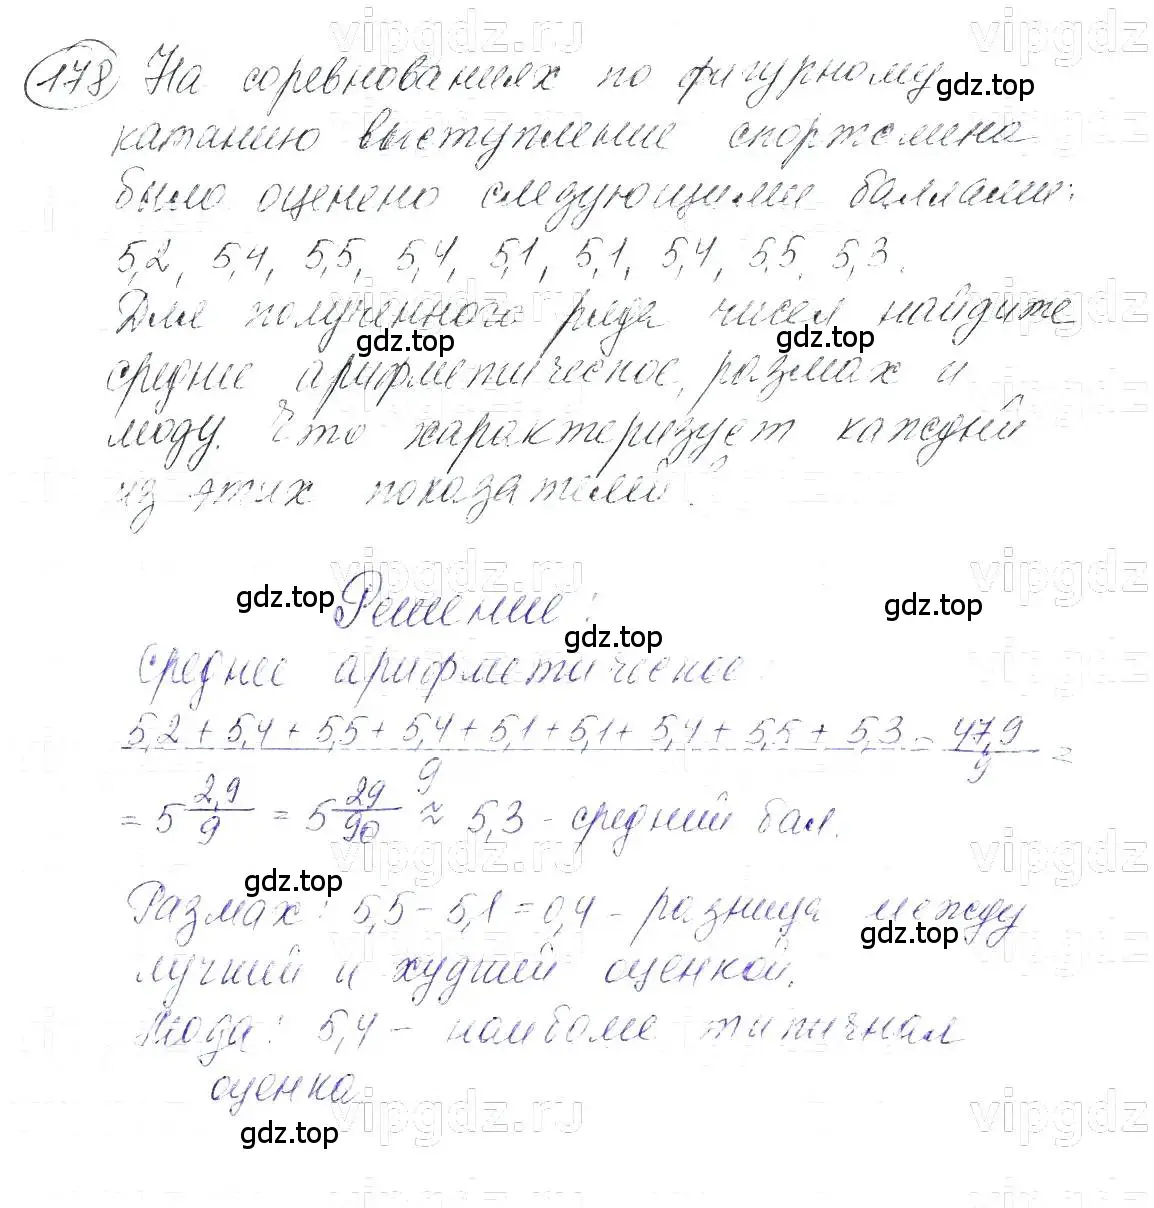 178 На соревнованиях по фигурному
катанию выступление спортсмена
было оценено следующими баллами:
5,2, 5,4, 5,5, 5,4, 5,1, 5,1, 5,4, 5,5, 5,3.
Для полученного ряда чисел найдите
среднее арифметическое, размах и
моду. Что характеризует каждый
из этих показателей?
Решение:
Среднее арифметическое:
5,2 + 5,4 + 5,5 + 5,4 + 5,1 + 5,1 + 5,4 + 5,5 + 5,3 / 9 = 47,9 / 9 =
= 5 2,9/9 = 5 29/90 ≈ 5,3 - средний бал.
Размах: 5,5 - 5,1 = 0,4 - разница между
лучшей и худшей оценкой.
Мода: 5,4 - наиболее типичная
оценка
vipgdz.ru
vipgdz
gdz.top
gdz.top
gdz.top
gdz.top
gdz.top
gdz.top
gdz.top
gdz.top
gdz.top